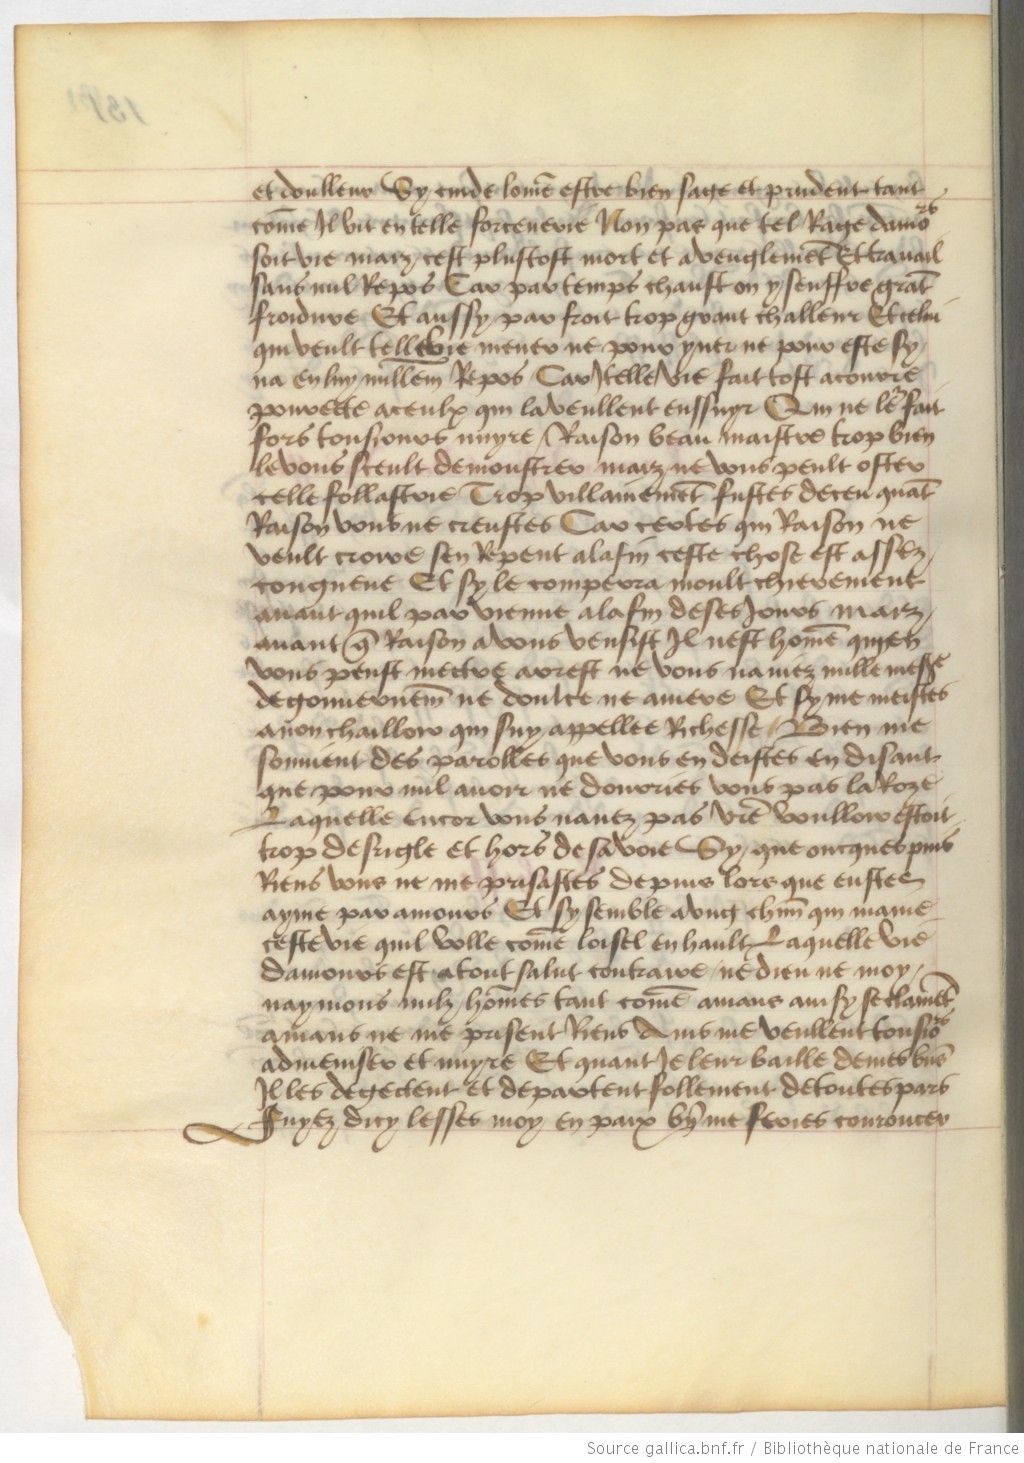 et doulleur Sy cuide lome͂ estre bien sage et prudent tant
come͂ Il vit en telle forcenerie Non pas que tel Rage damors
soit vie maiz cest plustost mort et aveuglemet͂ Et travail
sans nul Repos Car par temps chault on y seuffre gra͂t
froidure Et aussy par froit trop grant challeur Et celui
qui veult telle vie mener ne pour yuer ne pour este sy
na en luy nullem͂ Repos Car telle vie fait tost acourre
pourete a ceulx qui la veullent enssuyr Qui ne le fait
fors tousiours nuyre / Raison beau maistre trop bien
le vous sceult demonstrer maiz ne vous peult oster
celle follastrie Trop villainemet͂ fustes deceu qua͂t
Raison vous ne creustes Car certes qui Raison ne
veult croire sen Repent a la fin ceste chose est assez
congneue Et sy le comperra moult chierement
auant quil parvienne a la fin de ses Jours maiz
auant q͂ Raison a vous vensist Il nest home͂ qui en
vous peust mectre arrest ne vous naviez nulle mess͂e
de gouuernem͂ ne doulce ne amere Et sy me meistes
a non challoir qui suy appellee Richesse / Bien me
souuient des parolles que vous en deistes en disant
que pour nul auoir ne donries vous pas la Roze
Laquelle encor vous nauez pas vr͂e voulloir estoit
trop desrigle et hors de savoir Sy que oncques puis
Riens vous ne me prisastes depuis lors que eustes
ayme par amours Et sy semble a vng chun͂ qui maine
ceste vie quil volle come͂ loisel en hault Laquelle vie
damours est a tout salut contraire / ne dieu ne moy /
naymons nulz ho͂mes tant come͂ amans ainsy se clamet͂
amans ne me prisent Riens Ains me veullent tousio͂rs
admenuser et nuyre Et quant Je leur baille de mes bns͂
Il les degectent et departent follement de toutes pars
Fuyez dicy lesses moy en paix vo͂ me feries couroucer
Source gallica.bnf.fr / Bibliothèque nationale de France